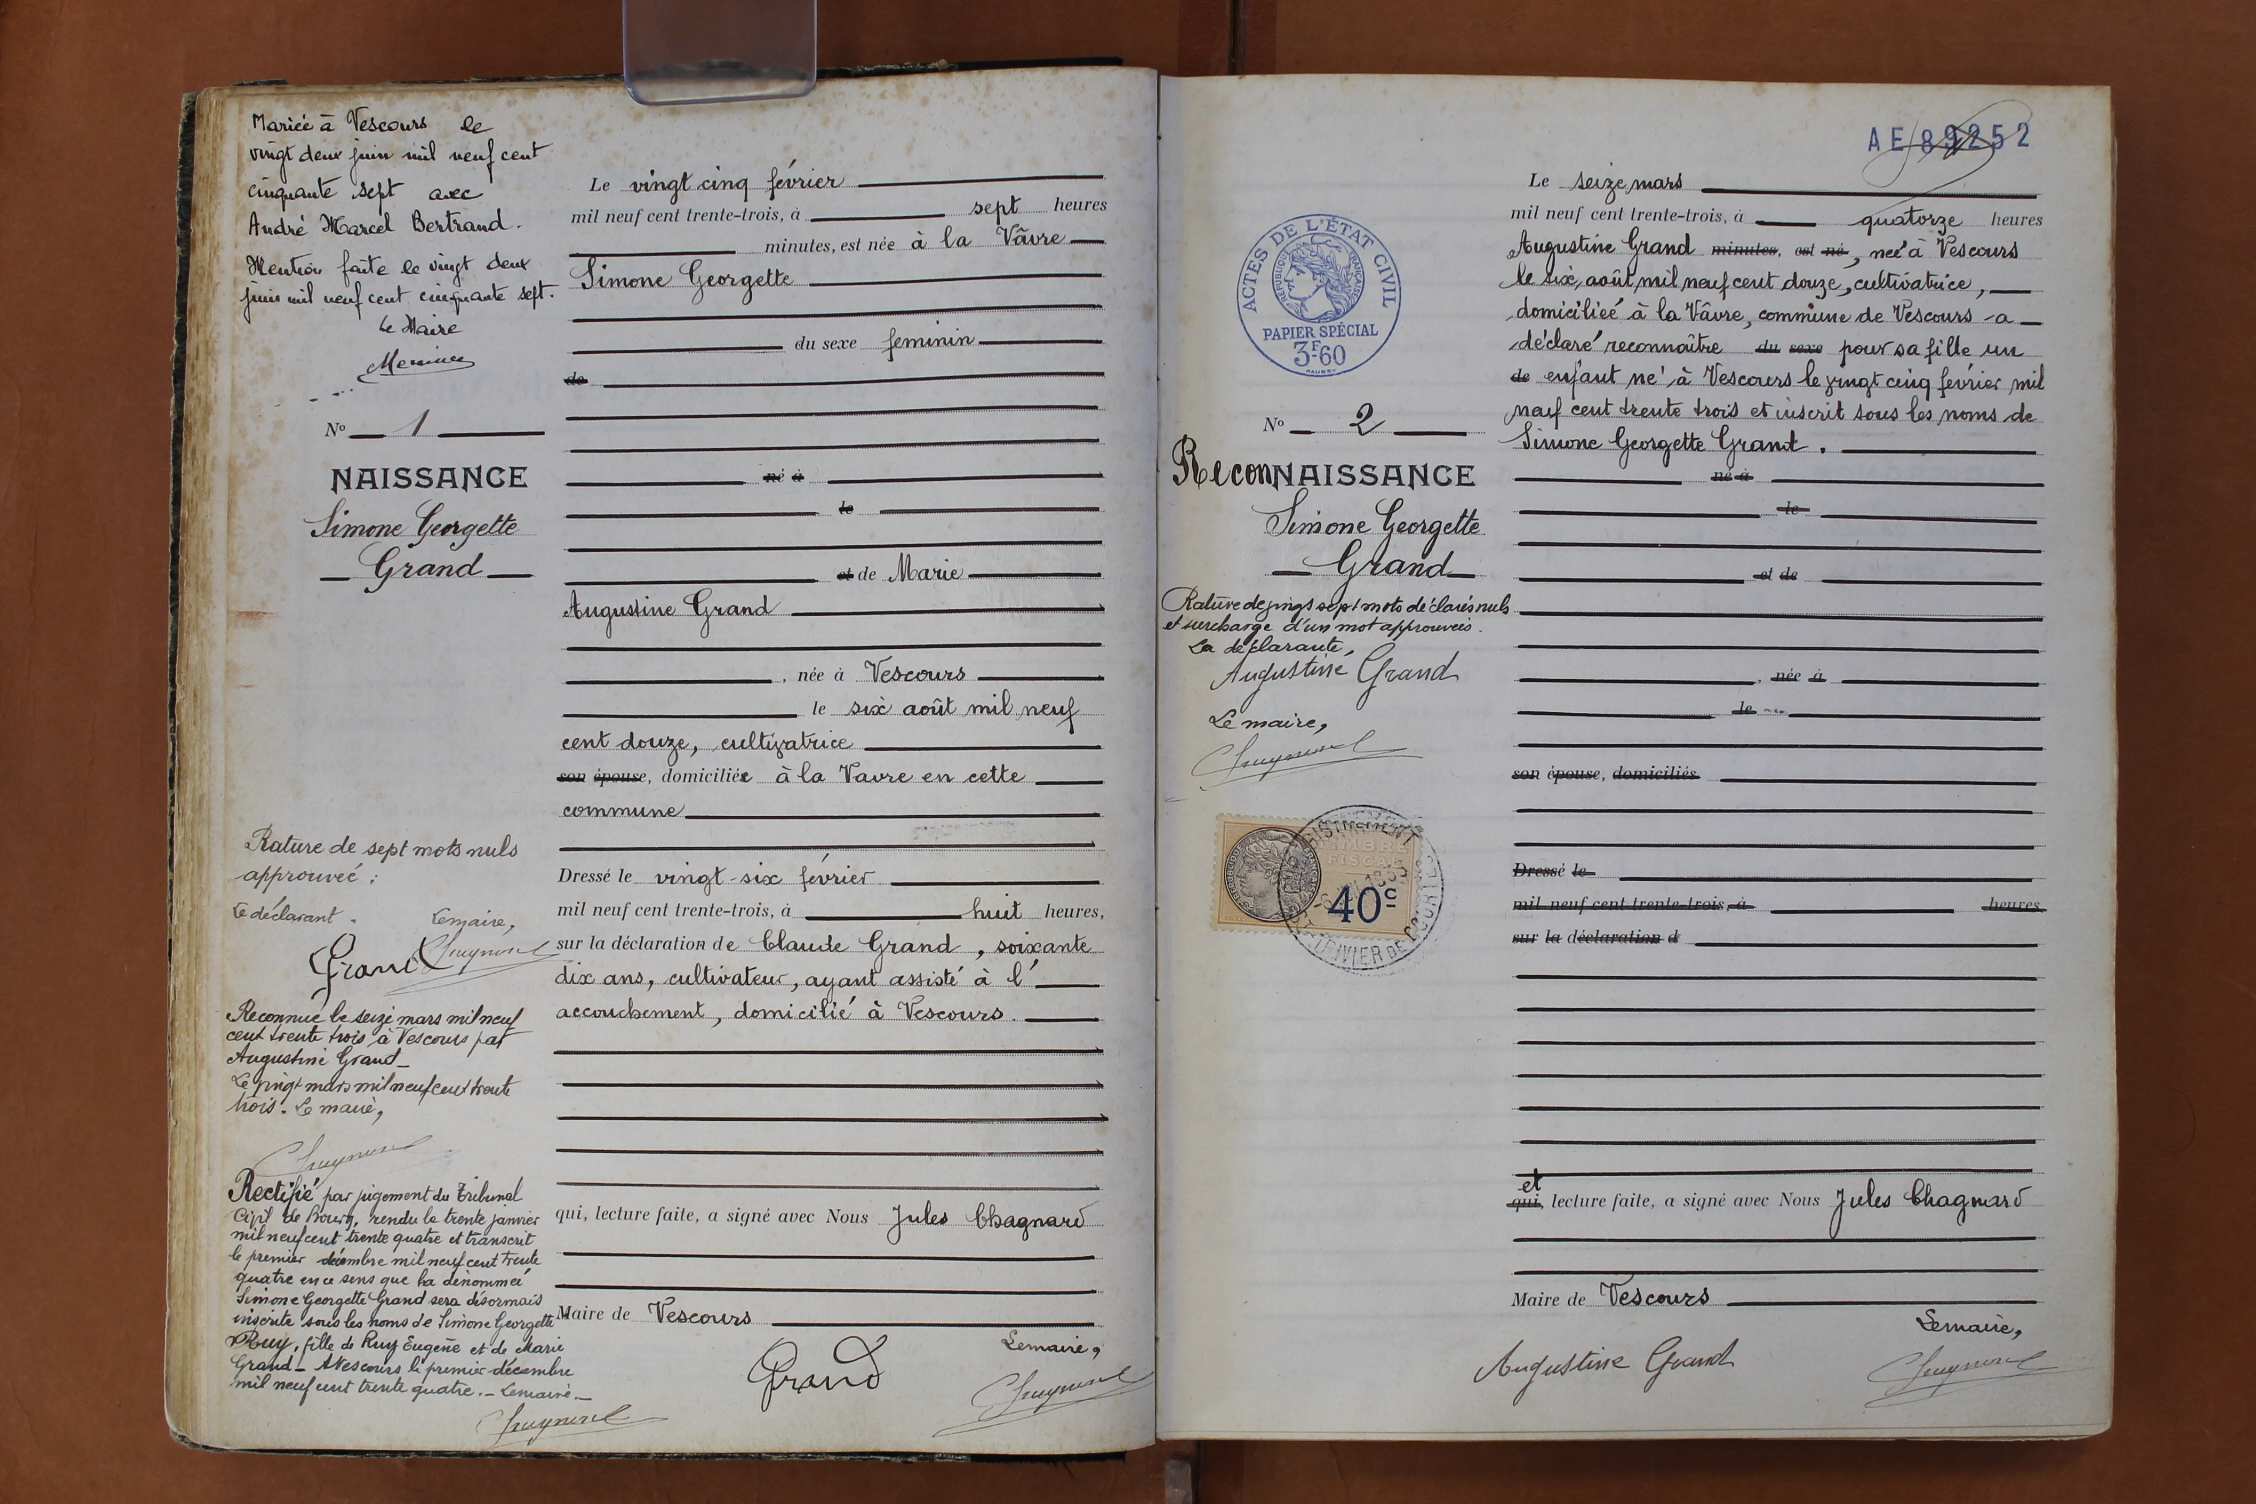 Mariée à Vescours le
vingt deux juin mil neuf cent
cinquante sept avec
André Marcel Bertrand.
Mention faite le vingt deux
juin mil neuf cent cinquante sept.
Le Maire
No 1
NAISSANCE
Simone Georgette
Grand
Rature de sept mots nuls
approuvée :
Le déclarant. Le maire,
Grand
Reconnue le seize mars mil neuf
cent trente trois à Vescours par
Augustine Grand
Le vingt mars mil neuf cent trente
trois. Le maire,
Rectifié par jugement du Tribunal
Civil de Bourg, rendu le trente janvier
mil neuf cent trente quatre et transcrit
le premier décembre mil neuf cent trente
quatre en ce sens que la dénommée
Simone Georgette Grand sera désormais
inscrite sous les noms de Simone Georgette
Ruy, fille de Ruy Eugène et de Marie
Grand - A Vescours le premier décembre
mil neuf cent trente quatre. - Le maire -
Le vingt cinq février
mil neuf cent trente-trois, à sept heures
minutes, est née à la Vâvre
Simone Georgette
du sexe feminin
de
né à
le
et de Marie
Augustine Grand
, née à Vescours
le six août mil neuf
cent douze, cultivatrice
son épouse, domiciliée à la Vavre en cette
commune
Dressé le vingt-six février
mil neuf cent trente-trois, à huit heures,
sur la déclaration de Claude Grand, soixante
dix ans, cultivateur, ayant assisté à l'
accouchement, domicilié à Vescours.
qui, lecture faite, a signé avec Nous Jules Chagnard
Maire de Vescours
Le maire,
Grand
AE 89252
ACTES DE L'ÉTAT CIVIL
RÉPUBLIQUE FRANÇAISE
PAPIER SPÉCIAL
3F.60
No 2
ReconNAISSANCE
Simone Georgette
Grand
Rature de vingt sept mots déclarés nuls
et surcharge d'un mot approuvées.
La déclarante,
Augustine Grand
Le maire,
TIMBRE
FISCAL
40c
Le seize mars
mil neuf cent trente-trois, à quatorze heures
Augustine Grand minutes, est né, née à Vescours
le six août mil neuf cent douze, cultivatrice,
domiciliée à la Vâvre, commune de Vescours a
déclaré reconnaître du sexe pour sa fille un
de enfant né à Vescours le vingt cinq février mil
neuf cent trente trois et inscrit sous les noms de
Simone Georgette Grand.
né à
le
et de
, née à
le
son épouse, domiciliés
Dressé le
mil neuf cent trente-trois, à heures,
sur la déclaration d
et
qui, lecture faite, a signé avec Nous Jules Chagnard
Maire de Vescours
Le maire,
Augustine Grand